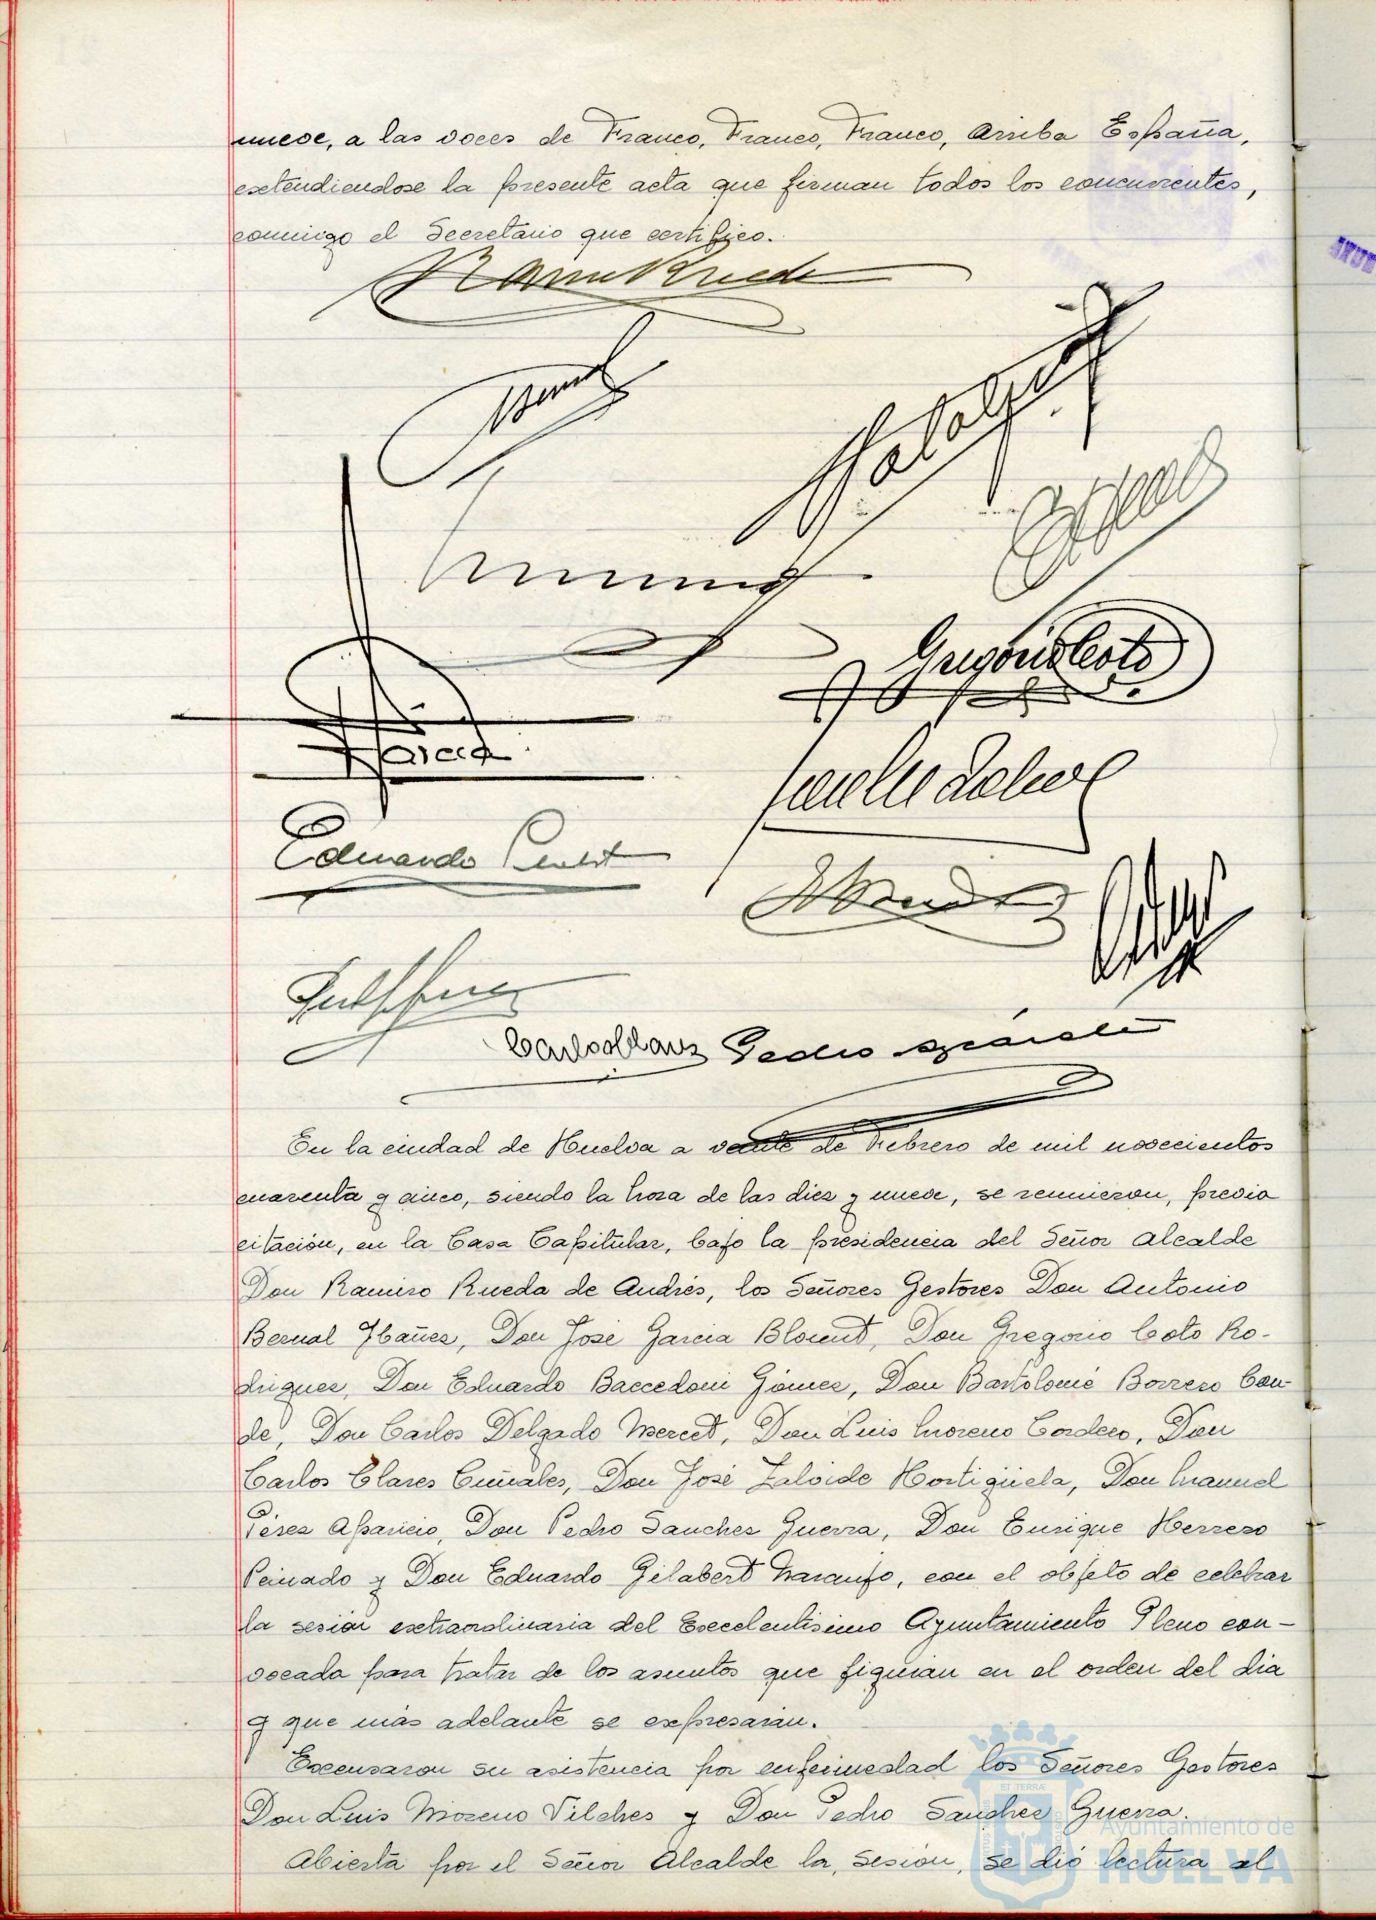 nueve, a las voces de Franco, Franco, Franco, Arriba España,
extendiendose la presente acta que firman todos los concurrentes,
conmigo el Secretario que certifico.
Ramiro Rueda
Bernal
Gregorio Coto
García
Eduardo
Carlos Clares Pedro
En la ciudad de Huelva a veinte de Febrero de mil novecientos
cuarenta y cinco, siendo la hora de las diez y nueve, se reunieron, previa
citación, en la Casa Capitular, bajo la presidencia del Señor Alcalde
Don Ramiro Rueda de Andrés, los Señores Gestores Don Antonio
Bernal Ybañez, Don José García Blount, Don Gregorio Coto Ro-
driguez, Don Eduardo Baccedoni Gómez, Don Bartolomé Borrero Con-
de, Don Carlos Delgado Mercet, Don Luis Moreno Cordero, Don
Carlos Clares Cuñales, Don José Zalvide Hortigüela, Don Manuel
Pérez Aparicio, Don Pedro Sanchez Guerra, Don Enrique Herrero
Peinado y Don Eduardo Gilabert Naranjo, con el objeto de celebrar
la sesión extraordinaria del Excelentísimo Ayuntamiento Pleno con-
vocada para tratar de los asuntos que figuran en el orden del día
y que más adelante se expresarán.
Excusaron su asistencia por enfermedad los Señores Gestores
Don Luis Moreno Vilches y Don Pedro Sanchez Guerra.
Abierta por el Señor Alcalde la sesión, se dió lectura al
Ayuntamiento de
HUELVA